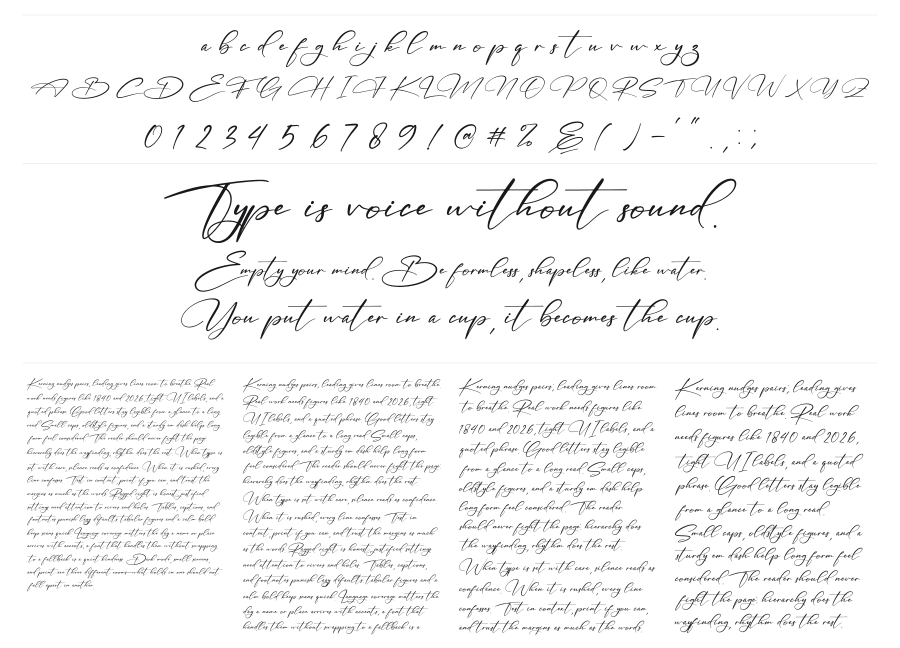 a b c d e f g h i j k l m n o p q r s t u v w x y z
A B C D E F G H I J K L M N O P Q R S T U V W X Y Z
0 1 2 3 4 5 6 7 8 9 ! @ # % & ( ) – ' " . , : ;
Type is voice without sound.
Empty your mind. Be formless, shapeless, like water.
You put water in a cup, it becomes the cup.
Kerning nudges pairs, leading gives lines room to breathe. Real
work needs figures like 1840 and 2026, tight UI labels, and a
quoted phrase. Good letters stay legible from a glance to a long
read. Small caps, oldstyle figures, and a sturdy em dash help long
form feel considered. The reader should never fight the page:
hierarchy does the wayfinding, rhythm does the rest. When type is
set with care, silence reads as confidence. When it is rushed, every
line confesses. Test in context, print if you can, and trust the
margins as much as the words. Ragged right is honest; justified
setting needs attention to rivers and holes. Tables, captions, and
footnotes punish lazy defaults: tabular figures and a calm bold
keep scans quick. Language coverage matters the day a name or place
arrives with accents; a font that handles them without swapping
to a fallback is a quiet kindness. Dark mode, small screens,
and print are three different rooms—what holds in one should not
fall apart in another.
Kerning nudges pairs, leading gives lines room to breathe.
Real work needs figures like 1840 and 2026, tight
UI labels, and a quoted phrase. Good letters stay
legible from a glance to a long read. Small caps,
oldstyle figures, and a sturdy em dash help long form
feel considered. The reader should never fight the page:
hierarchy does the wayfinding, rhythm does the rest.
When type is set with care, silence reads as confidence.
When it is rushed, every line confesses. Test in
context, print if you can, and trust the margins as much
as the words. Ragged right is honest; justified setting
needs attention to rivers and holes. Tables, captions,
and footnotes punish lazy defaults: tabular figures and a
calm bold keep scans quick. Language coverage matters the
day a name or place arrives with accents; a font that
handles them without swapping to a fallback is a
Kerning nudges pairs, leading gives lines room
to breathe. Real work needs figures like
1840 and 2026, tight UI labels, and a
quoted phrase. Good letters stay legible
from a glance to a long read. Small caps,
oldstyle figures, and a sturdy em dash help
long form feel considered. The reader
should never fight the page: hierarchy does
the wayfinding, rhythm does the rest.
When type is set with care, silence reads as
confidence. When it is rushed, every line
confesses. Test in context, print if you can,
and trust the margins as much as the words.
Kerning nudges pairs, leading gives
lines room to breathe. Real work
needs figures like 1840 and 2026,
tight UI labels, and a quoted
phrase. Good letters stay legible
from a glance to a long read.
Small caps, oldstyle figures, and a
sturdy em dash help long form feel
considered. The reader should never
fight the page: hierarchy does the
wayfinding, rhythm does the rest.